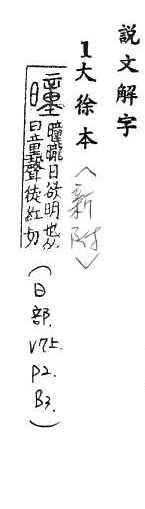 説文解字
1大徐本〈新附〉
曈 曈曨日欲明也从
日童聲徒紅切
(日部.V7上.P2.B3.)